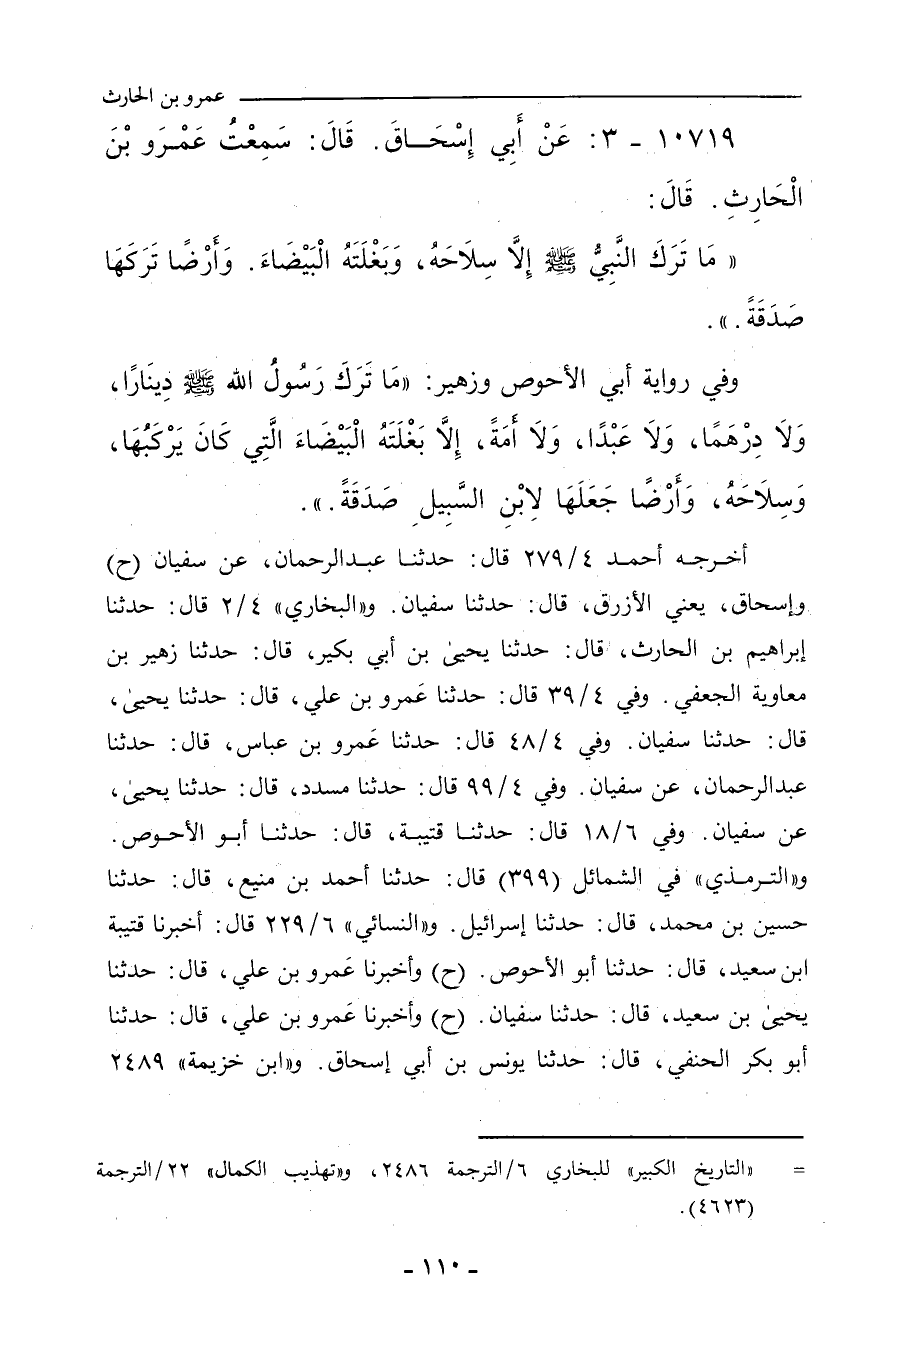 عمرو بن الحارث
١٠٧١٩ - ٣: عَنْ أَبِي إِسْحَاقَ. قَالَ: سَمِعْتُ عَمْرَو بْنَ
الْحَارِثِ. قَالَ:
« مَا تَرَكَ النَّبِيُّ ﷺ إِلَّا سِلَاحَهُ، وَبَغْلَتَهُ الْبَيْضَاءَ. وَأَرْضًا تَرَكَهَا
صَدَقَةً.».
وفي رواية أبي الأحوص وزهير: «مَا تَرَكَ رَسُولُ الله ﷺ دِينَارًا،
وَلَا دِرْهَمًا، وَلَا عَبْدًا، وَلَا أَمَةً، إِلَّا بَغْلَتَهُ الْبَيْضَاءَ الَّتِي كَانَ يَرْكَبُهَا،
وَسِلَاحَهُ، وَأَرْضًا جَعَلَهَا لِابْنِ السَّبِيلِ صَدَقَةً.».
أخرجه أحمد ٢٧٩/٤ قال: حدثنا عبدالرحمان، عن سفيان (ح)
وإسحاق، يعني الأزرق، قال: حدثنا سفيان. و«البخاري» ٢/٤ قال: حدثنا
إبراهيم بن الحارث، قال: حدثنا يحيىٰ بن أبي بكير، قال: حدثنا زهير بن
معاوية الجعفي. وفي ٣٩/٤ قال: حدثنا عَمرو بن علي، قال: حدثنا يحيىٰ،
قال: حدثنا سفيان. وفي ٤٨/٤ قال: حدثنا عَمرو بن عباس، قال: حدثنا
عبدالرحمان، عن سفيان. وفي ٩٩/٤ قال: حدثنا مسدد، قال: حدثنا يحيىٰ،
عن سفيان. وفي ١٨/٦ قال: حدثنا قتيبة، قال: حدثنا أبو الأحوص.
و«الترمذي» في الشمائل (٣٩٩) قال: حدثنا أحمد بن منيع، قال: حدثنا
حسين بن محمد، قال: حدثنا إسرائيل. و«النسائي» ٢٢٩/٦ قال: أخبرنا قتيبة
ابن سعيد، قال: حدثنا أبو الأحوص. (ح) وأخبرنا عَمرو بن علي، قال: حدثنا
يحيىٰ بن سعيد، قال: حدثنا سفيان. (ح) وأخبرنا عَمرو بن علي، قال: حدثنا
أبو بكر الحنفي، قال: حدثنا يونس بن أبي إسحاق. و«ابن خزيمة» ٢٤٨٩
= «التاريخ الكبير» للبخاري ٦/الترجمة ٢٤٨٦، و«تهذيب الكمال» ٢٢/الترجمة
(٤٦٢٣).
- ١١٠ -